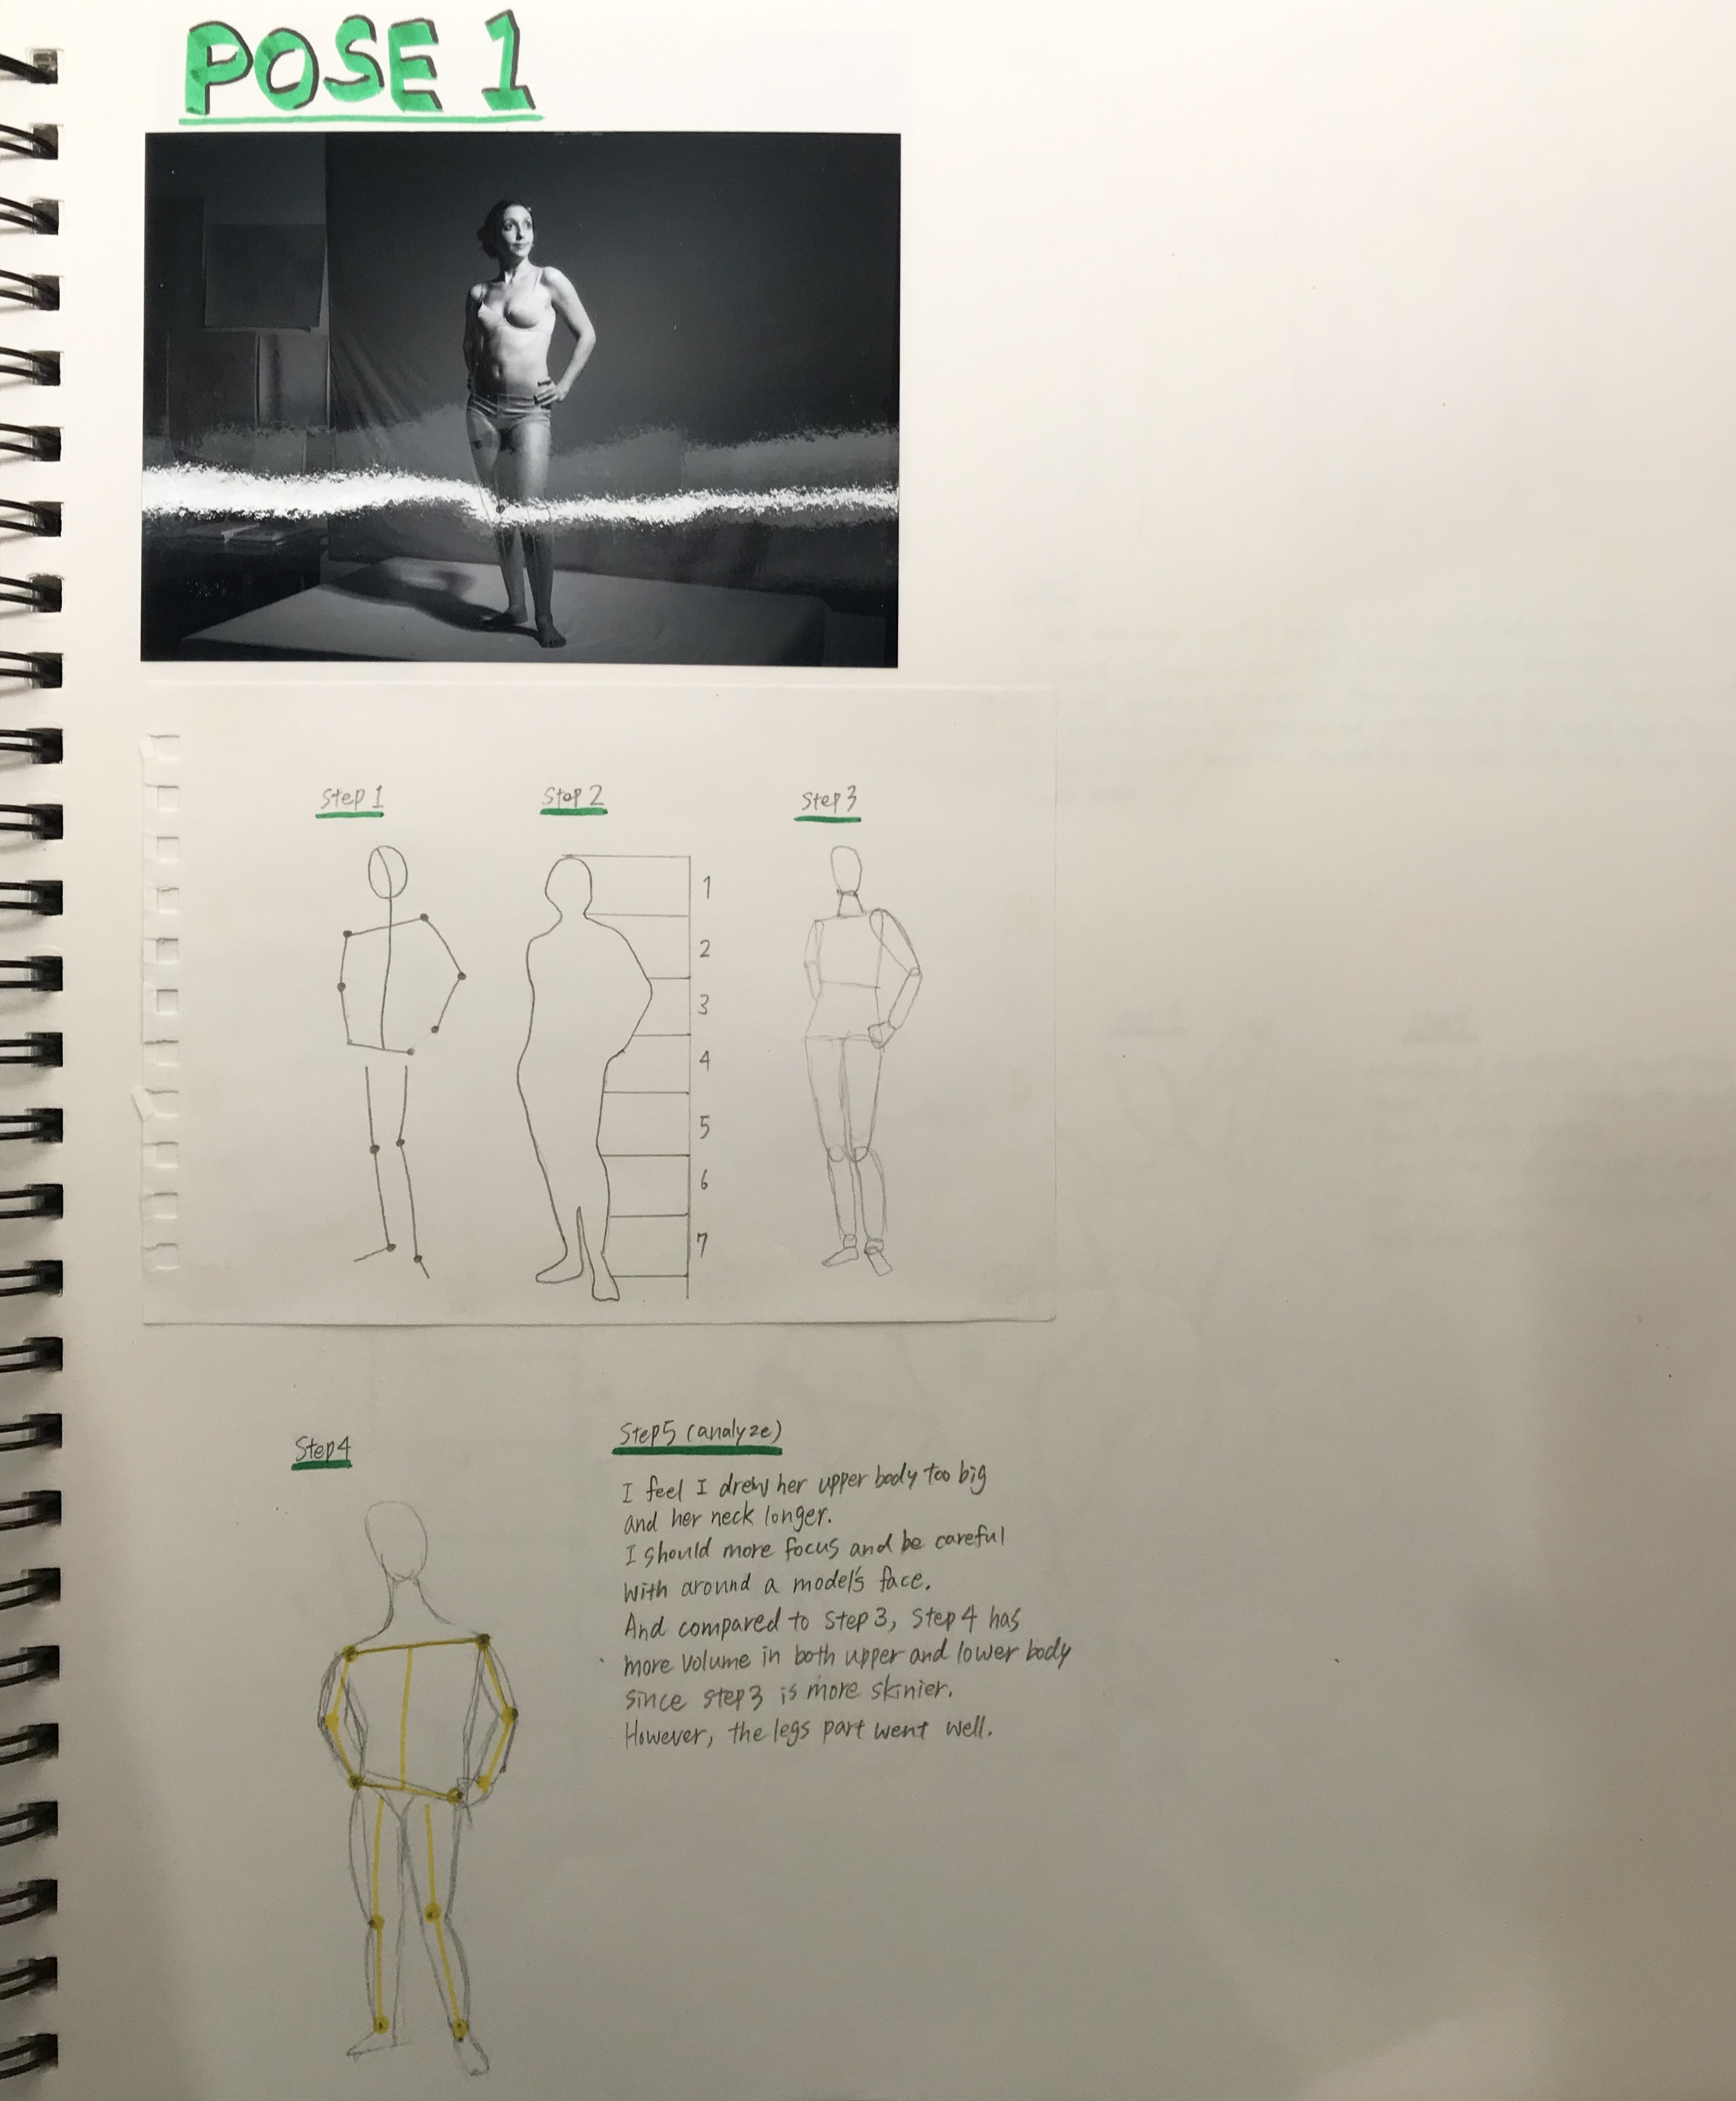 POSE 1
Step 1
Step 2
Step 3
1
2
3
4
5
6
7
Step 4
Step5 (analyze)
I feel I drew her upper body too big
and her neck longer.
I should more focus and be careful
with around a model's face.
And compared to step 3, step 4 has
more volume in both upper and lower body
since step 3 is more skinier.
However, the legs part went well.